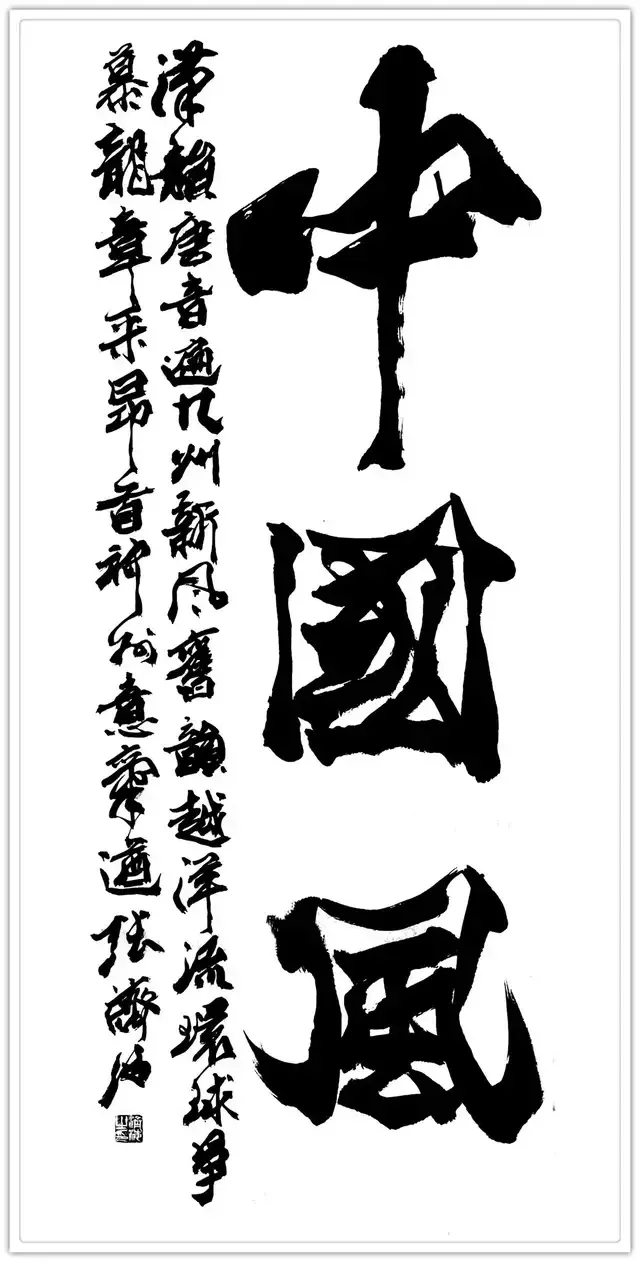 中國風
漢唐音遍九州新风舊韻越洋流環球爭
慕龍章采昂首神州意氣遒張濟